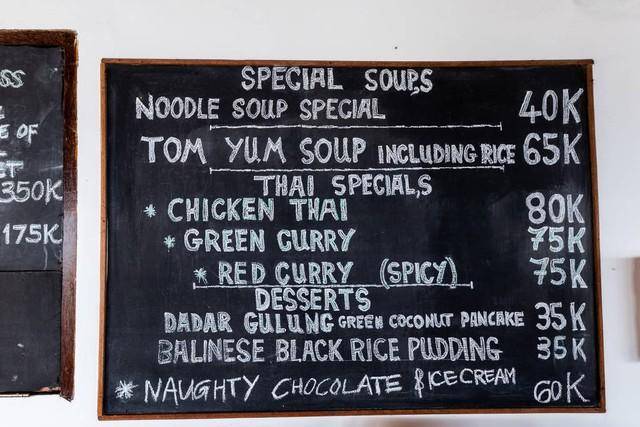 SS
E OF
350K
175K
SPECIAL SOUPS
NOODLE SOUP SPECIAL 40K
TOM YUM SOUP INCLUDING RICE 65K
THAI SPECIALS
* CHICKEN THAI 80K
* GREEN CURRY 75K
* RED CURRY (SPICY) 75K
DESSERTS
DADAR GULUNG GREEN COCONUT PANCAKE 35K
BALINESE BLACK RICE PUDDING 35K
* NAUGHTY CHOCOLATE & ICECREAM 60K